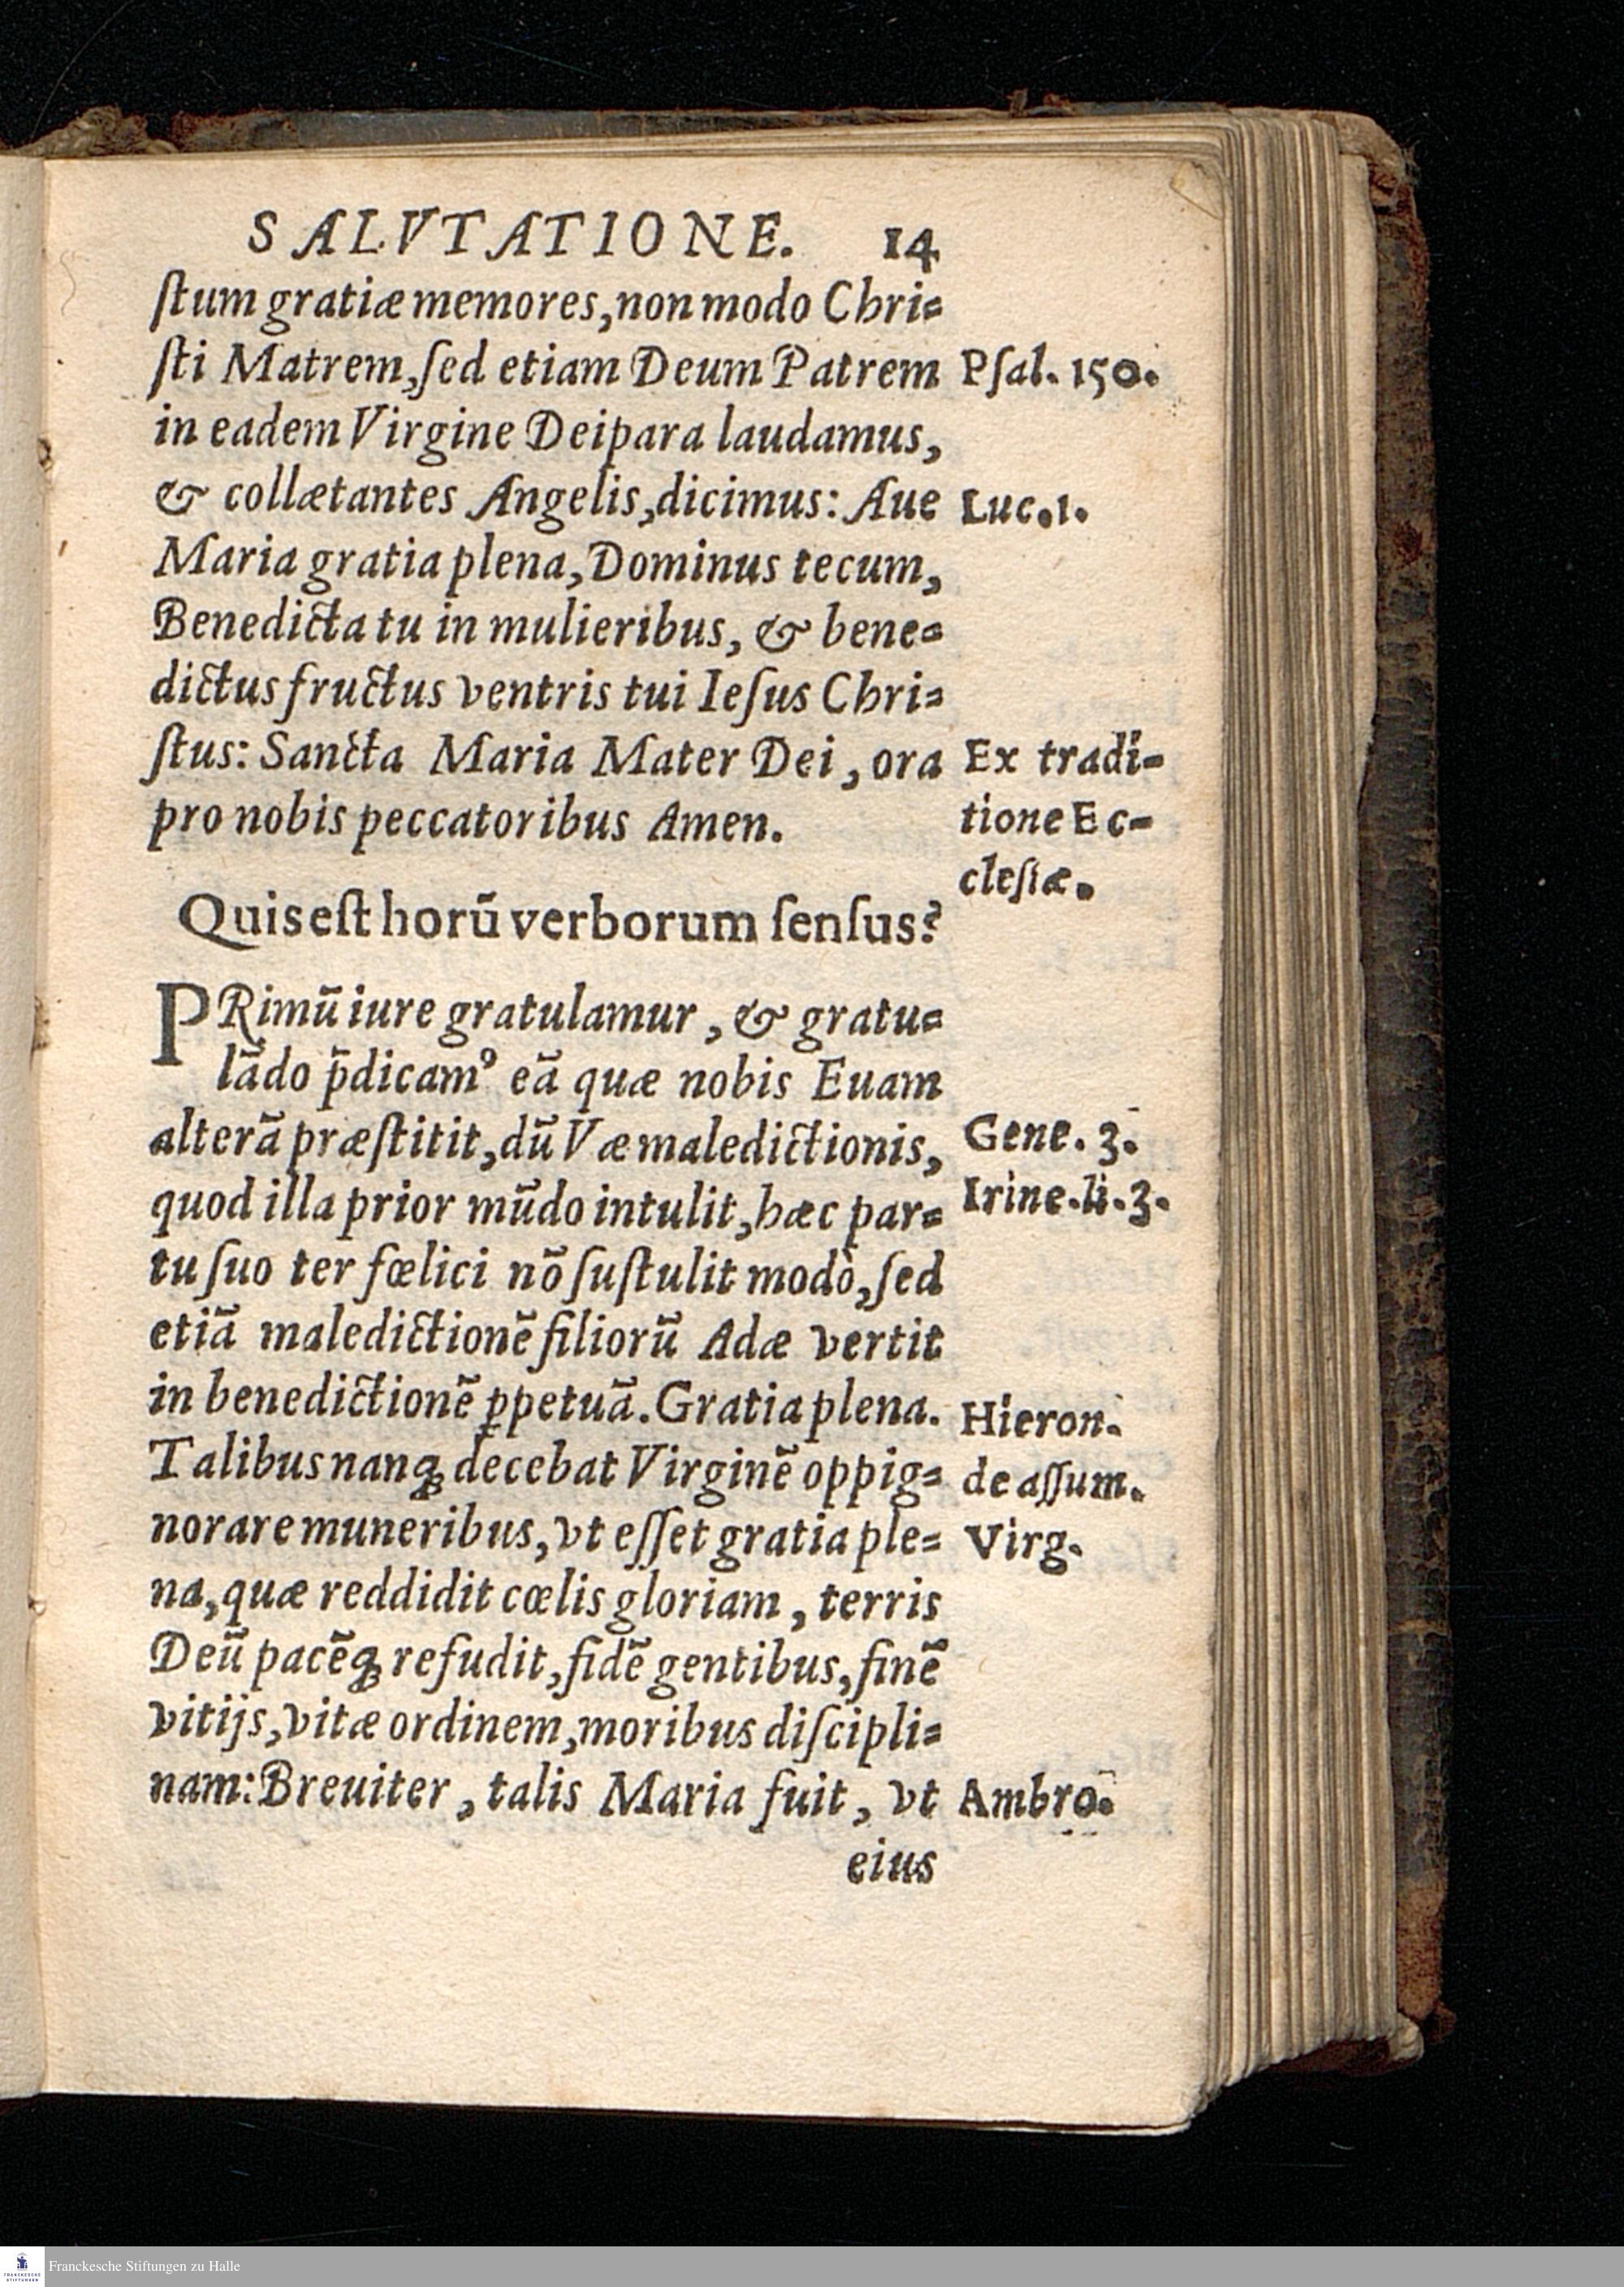 SALVTATIONE. 14
ſtum gratiæ memores, non modo Chri=
ſti Matrem, ſed etiam Deum Patrem
Pſal. 150.
in eadem Virgine Deipara laudamus,
& collætantes Angelis, dicimus: Aue
Luc. 1.
Maria gratia plena, Dominus tecum,
Benedicta tu in mulieribus, & bene=
dictus fructus ventris tui Ieſus Chri=
ſtus: Sancta Maria Mater Dei, ora
pro nobis peccatoribus Amen.
Ex tradi-
tione Ec-
cleſiæ.
Quis eſt horū verborum ſenſus?
PRimū iure gratulamur, & gratu=
lādo p̄dicamꝰ eā quæ nobis Euam
alterā præſtitit, dū Væ maledictionis,
Gene. 3.
quod illa prior mūdo intulit, hæc par=
Irine. li. 3.
tu ſuo ter fœlici nō ſuſtulit modò, ſed
etiā maledictionē filiorū Adæ vertit
in benedictionē ꝑpetuā. Gratia plena.
Talibus nanꝗ decebat Virginē oppig=
norare muneribus, vt eſſet gratia ple=
Hieron.
de aſſum.
Virg.
na, quæ reddidit cœlis gloriam, terris
Deū pacēꝗ refudit, fidē gentibus, finē
vitijs, vitæ ordinem, moribus diſcipli=
nam: Breuiter, talis Maria fuit, vt
Ambro.
eius
FRANCKESCHE
STIFTUNGEN
Franckesche Stiftungen zu Halle